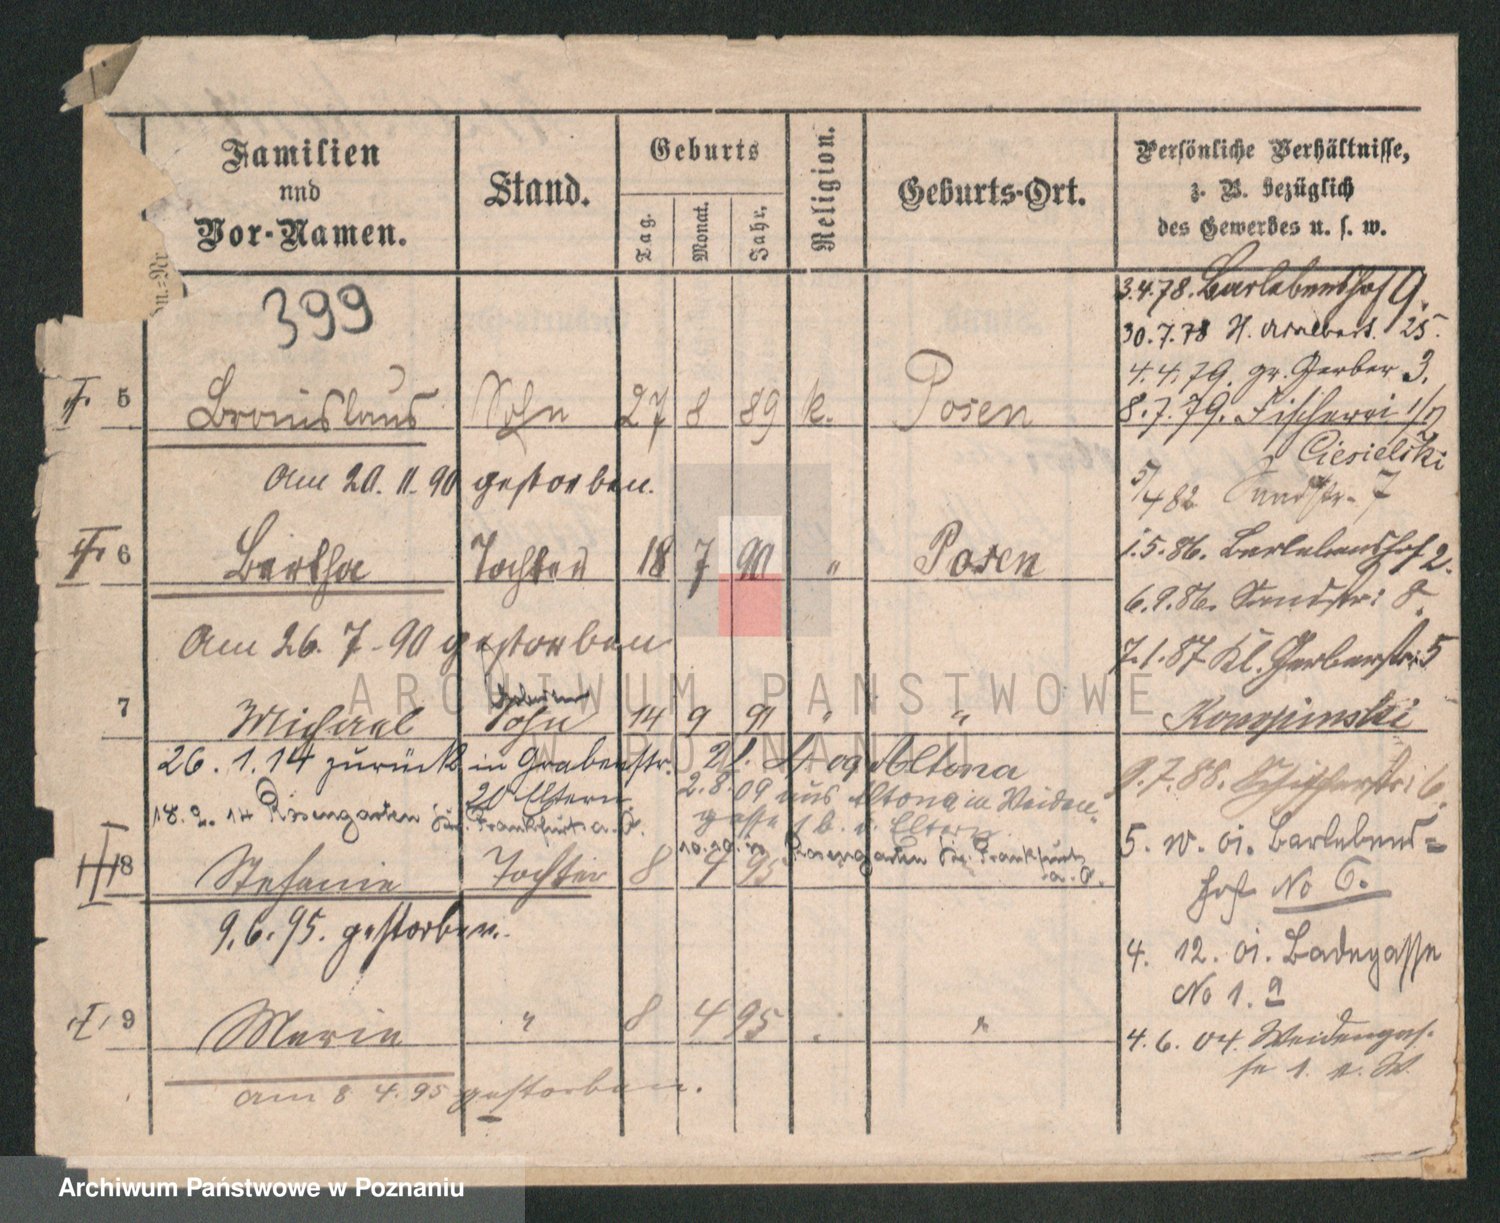 Familien
und
Vor-Namen.
Stand.
Geburts
Tag.
Monat.
Jahr.
Religion.
Geburts-Ort.
Persönliche Verhältnisse,
z. B. bezüglich
des Gewerbes u. s. w.
399
3.4.78. Barlebenshof 9.
30.7.78 H. Adalbert. 25.
4.4.79. gr. Gerber 3.
5 Bronislaus Sohn 27 8 89 k. Posen
8.7.79. Fischerei 1/2
Ciesielski
am 20.11.90 gestorben.
5/4 82 Sandstr. 7
6 Bertha Tochter 18 7 90 " Posen
1.5.86. Berlebenshof 2.
6.9.86. Sandstr: 8.
am 26.7-90 gestorben
7.1.87 Kl. Gerberstr: 5
7 Michael Sohn 14 9 91 " "
26.1.14 zurück in Grabenstr. 21. 4 09 Altona
20 Eltern. 2.8.09 aus Altona in Weiden-
gasse 1 b. d. Eltern
18.2.14 Rosengarten Kr. Frankfurt a. O.
10.10. Rosengarten Kr. Frankfurt
a. O.
9.7.88. 6.
8 Stefanie Tochter 8 4 95
5. 01. Barlebens=
hof No 6.
9.6.95. gestorben.
4. 12. 01. Badegasse
No 1.
9 Marie " 8 4 95 "
4.6.04. Weidengas-
se 1.
am 8 4.95 gestorben.
ARCHIWUM PAŃSTWOWE
W POZNANIU
Archiwum Państwowe w Poznaniu